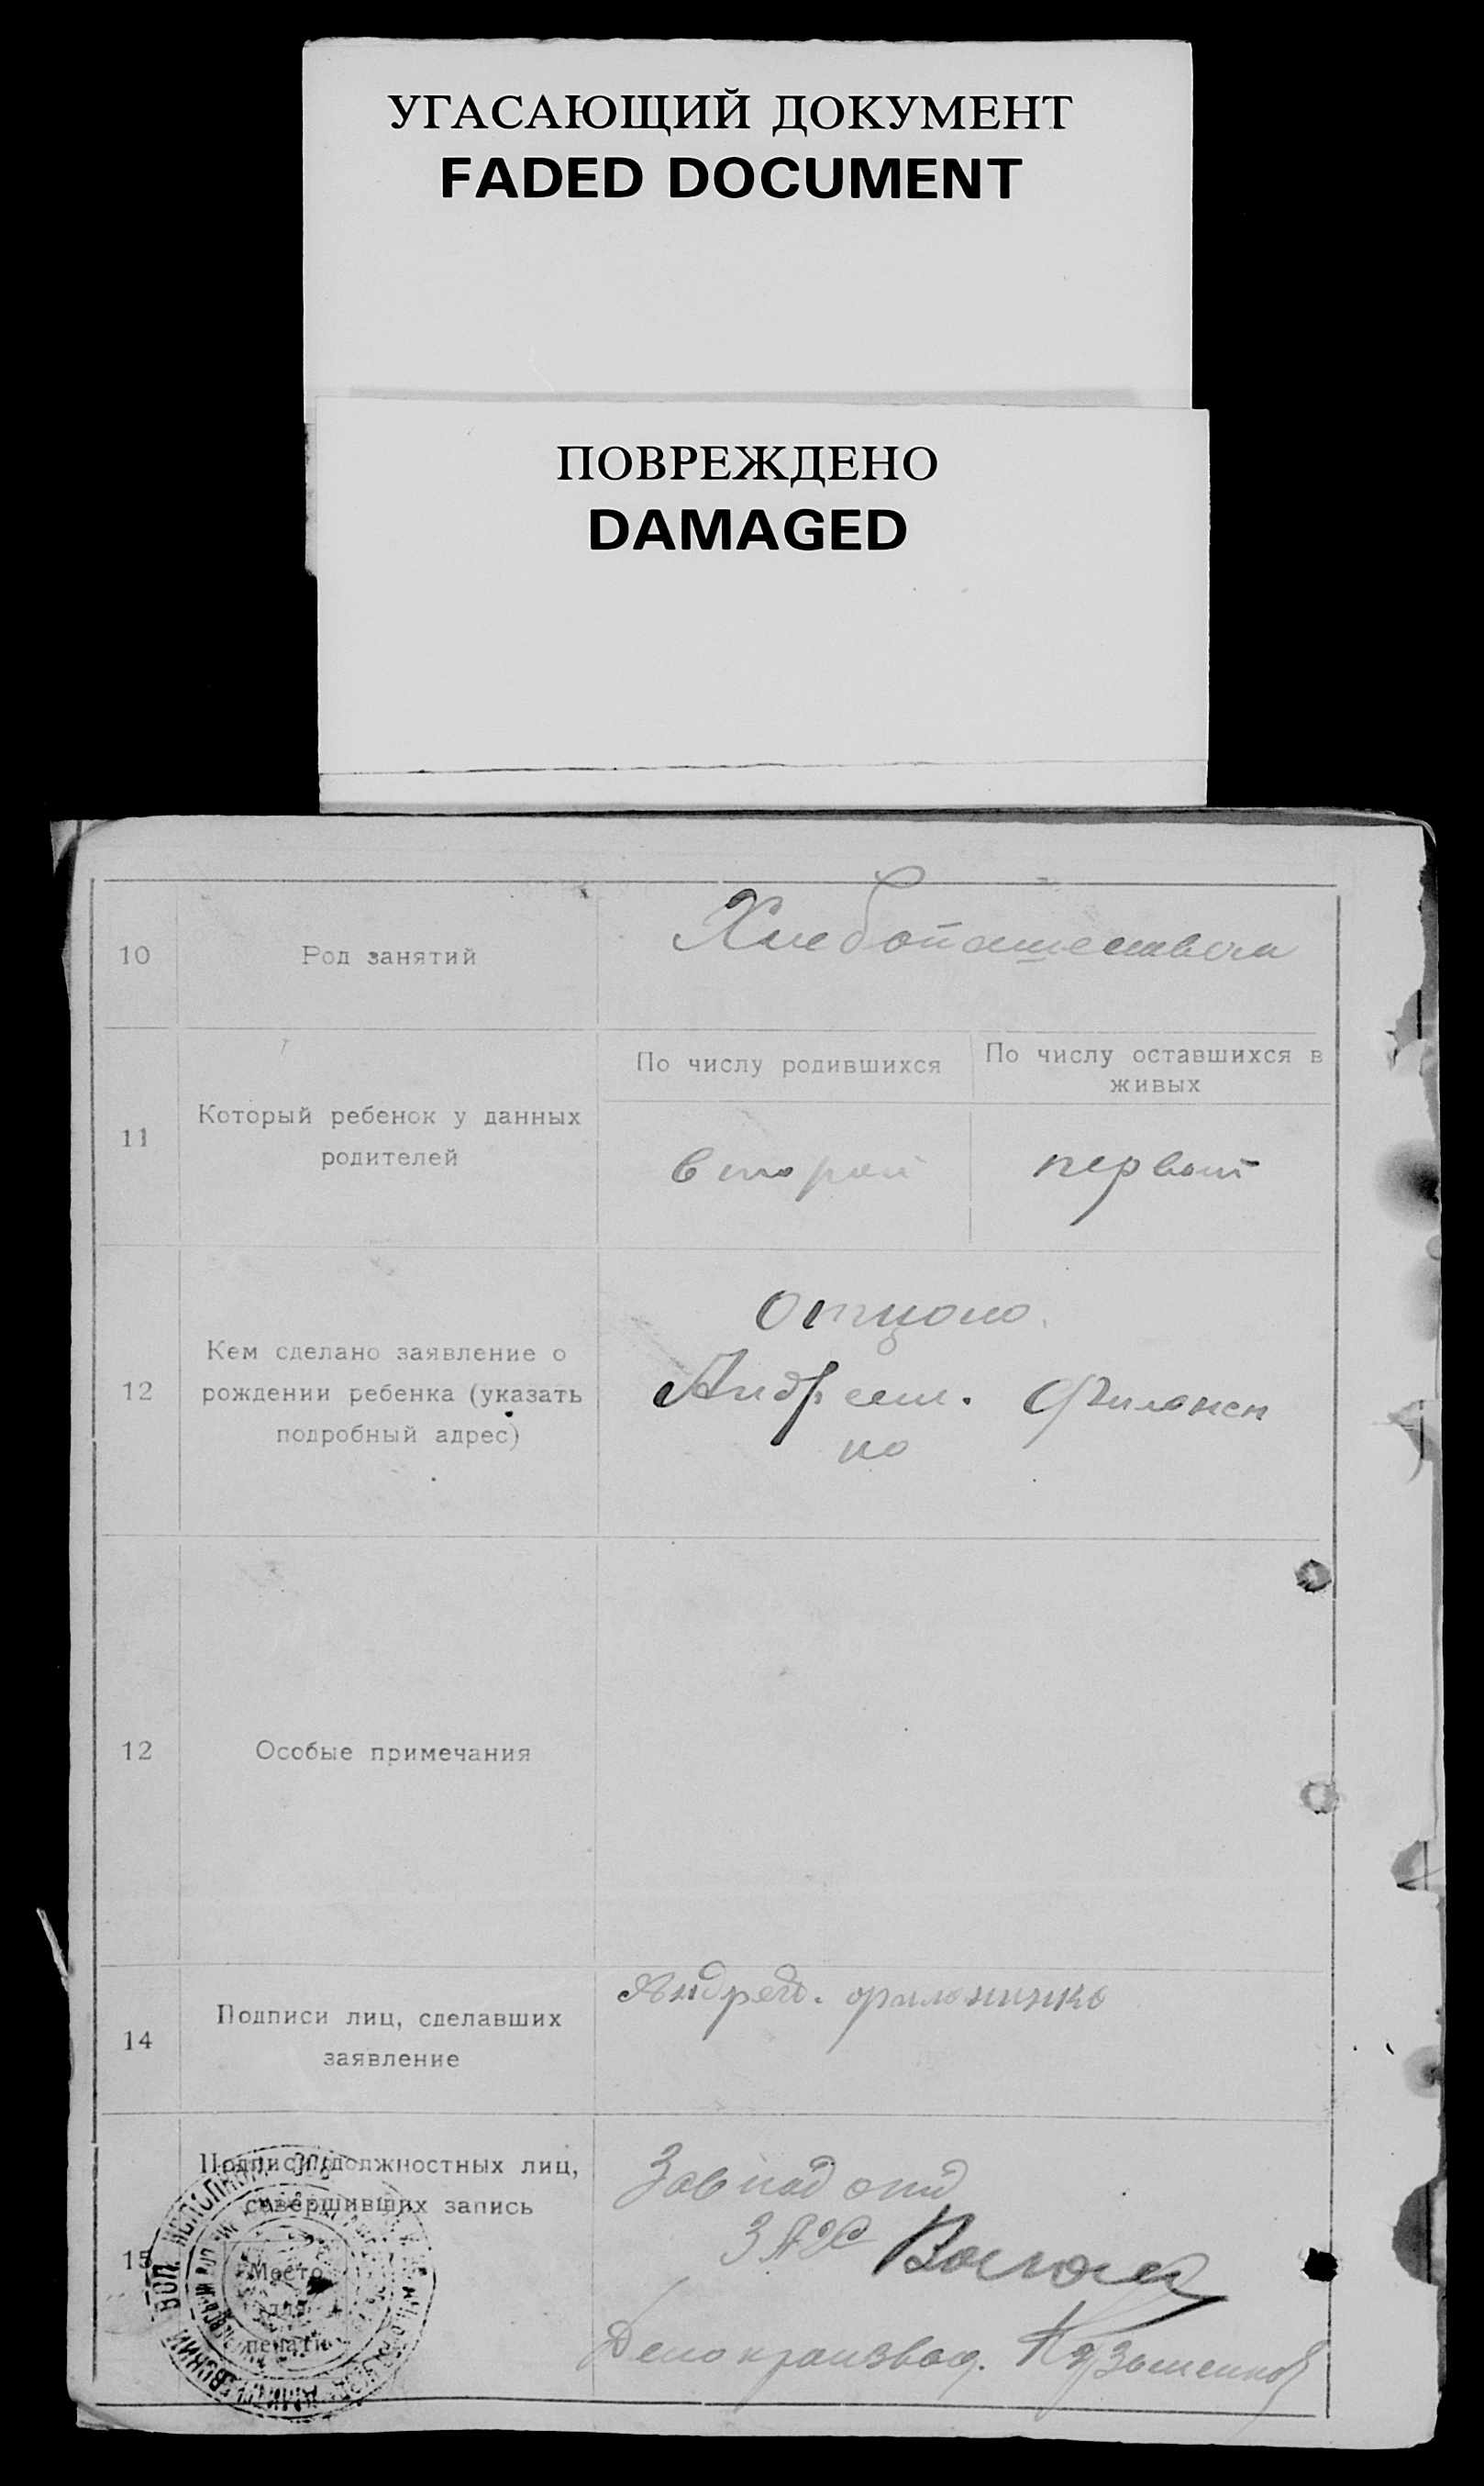 УГАСАЮЩИЙ ДОКУМЕНТ
FADED DOCUMENT
ПОВРЕЖДЕНО
DAMAGED
10
Род занятий
Хлебопашеством
11
Который ребенок у данных
родителей
По числу родившихся
По числу оставшихся в
живых
второй
первый
12
Кем сделано заявление о
рождении ребенка (указать
подробный адрес)
отцом.
Андреем. Филонен
ко
12
Особые примечания
14
Подписи лиц, сделавших
заявление
Андрей. филоненко
15
Подписи должностных лиц,
совершивших запись
Место
для
печати
Зав
ЗАГС
Делопроизвод.